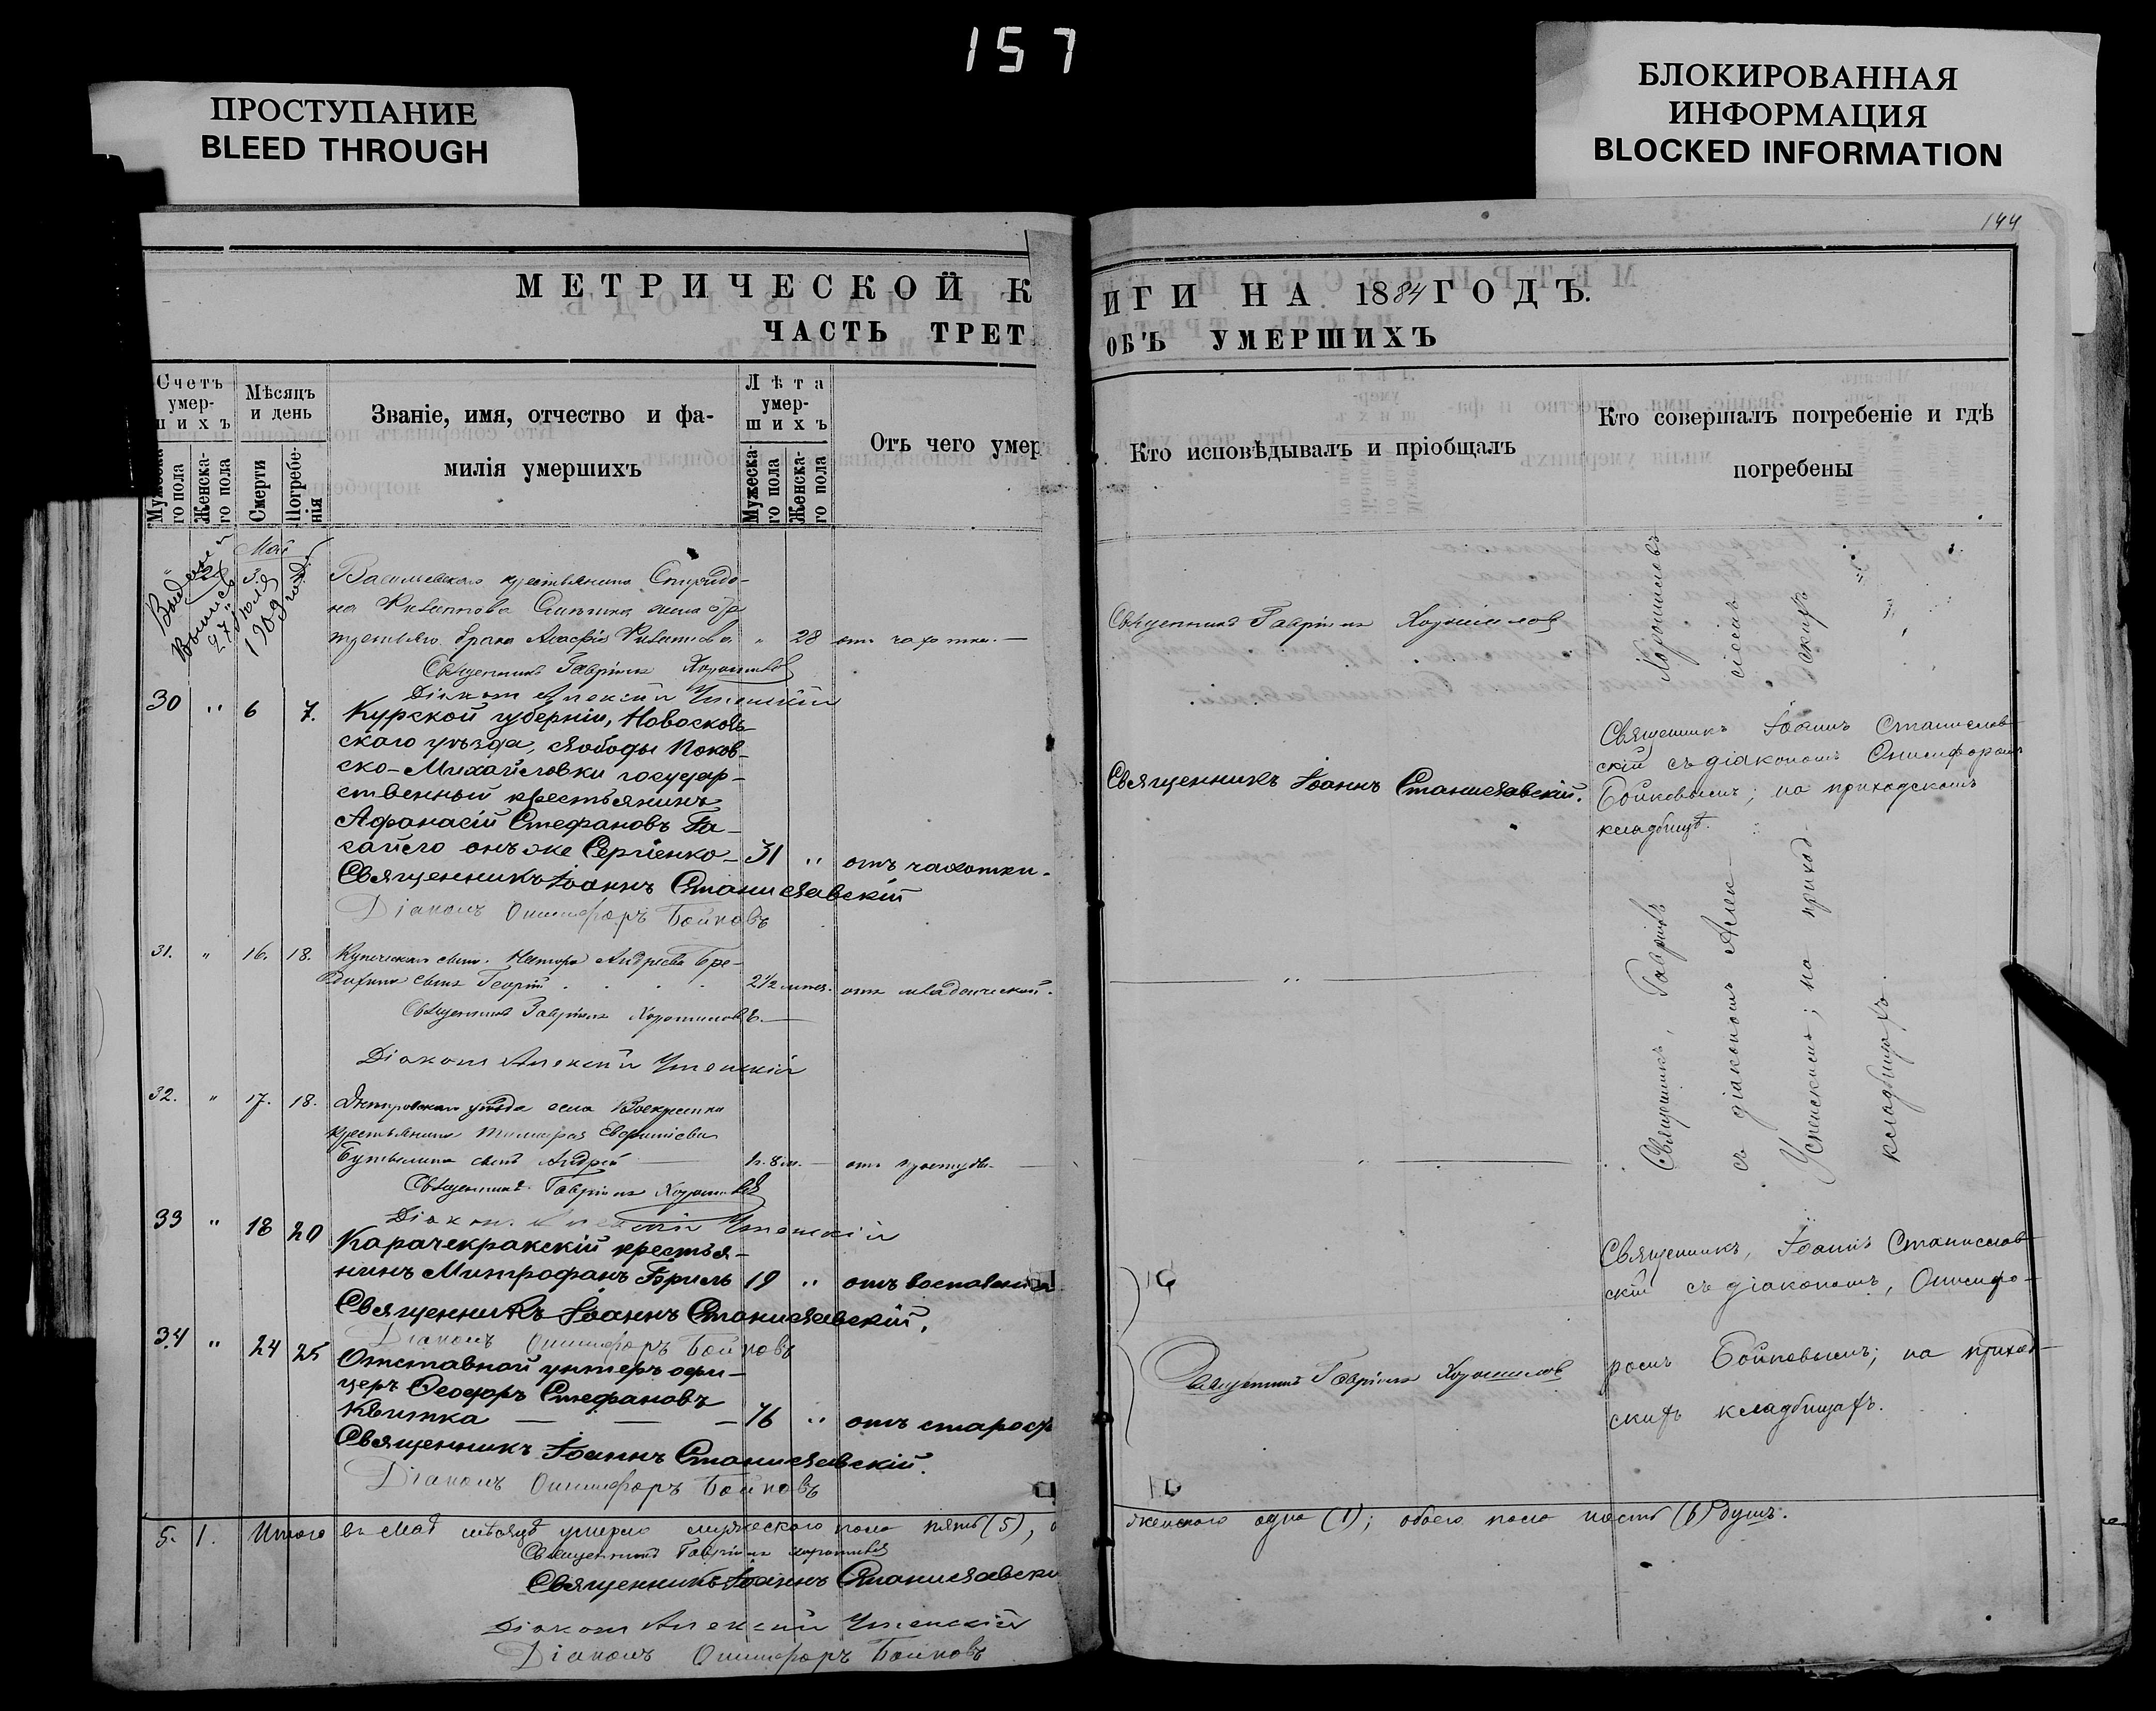 157
ПРОСТУПАНИЕ
BLEED THROUGH
БЛОКИРОВАННАЯ
ИНФОРМАЦИЯ
BLOCKED INFORMATION
144
МЕТРИЧЕСКОЙ К
ЧАСТЬ ТРЕТ
Счетъ умершихъ
Мужеска-го пола
Женска-го пола
Мѣсяцъ и день
Смерти
Погребе-нія
Званіе, имя, отчество и фа-
милія умершихъ
Лѣта умер-шихъ
Мужеска-го пола
Женска-го пола
Отъ чего умер
Май
3.
1909
27
крестьянина
третьяго брака
28 отъ чахотки.
Священникъ Гавріилъ Хорошиловъ
Діаконъ Алексій Успенскій
30 " 6 7. Курской губерніи, Новосколь-
скаго уѣзда, слободы Поков-
ско-Михайловки государ-
ственный крестьянинъ
Афанасій Стефановъ Га-
онъ же Сергіенко – 31 " отъ чахотки.
Священникъ Іоаннъ Станиславскій
Діаконъ Онисифоръ Бойковъ
31. " 16. 18. Андреева Бре-
сынъ Георгій 2½ отъ младенческой.
Священникъ Гавріилъ Хорошиловъ.
Діаконъ Алексій Успенскій
32. " 17. 18. Днѣпровскаго уѣзда села
крестьянина
сынъ Андрей отъ простуды
Священникъ Гавріилъ Хорошиловъ
Діаконъ Алексій Успенскій
33 " 18 20 Карачекракскій крестья-
нинъ Митрофанъ Бриль 19 " отъ воспаленія
Священникъ Іоаннъ Станиславскій.
Діаконъ Онисифоръ Бойковъ
34 " 24 25 Отставной унтеръ офи-
церъ Ѳеодоръ Стефановъ
Квитка – – – 76 " отъ старос
Священникъ Іоаннъ Станиславскій.
Діаконъ Онисифоръ Бойковъ
5. 1. Итого въ Маѣ мѣсяцѣ умерло мужескаго пола пять (5),
Священникъ Гавріилъ Хорошиловъ
Священникъ Іоаннъ Станиславскі
Діаконъ Алексій Успенскій
Діаконъ Онисифоръ Бойковъ
ИГИ НА 1884 ГОДЪ.
ОБЪ УМЕРШИХЪ
Кто исповѣдывалъ и пріобщалъ
Кто совершалъ погребеніе и гдѣ
погребены
Священникъ Гавріилъ Хорошиловъ
Священникъ Іоаннъ Станиславскій.
Священникъ Іоаннъ Станислав-
скій съ діакономъ Онисифоромъ
Бойковымъ; на приходскомъ
кладбищѣ.
Священникъ, Гавріилъ Хорошиловъ
съ діакономъ Алек-сіемъ
Успенскимъ; на приход-скихъ
кладбищахъ.
Священникъ, Іоаннъ Станислав-
скій съ діакономъ, Онисифо-
ромъ Бойковымъ; на приход-
скихъ кладбищахъ.
Священникъ Гавріилъ Хорошиловъ
женскаго одна (1); обоего пола шесть (6) душъ.